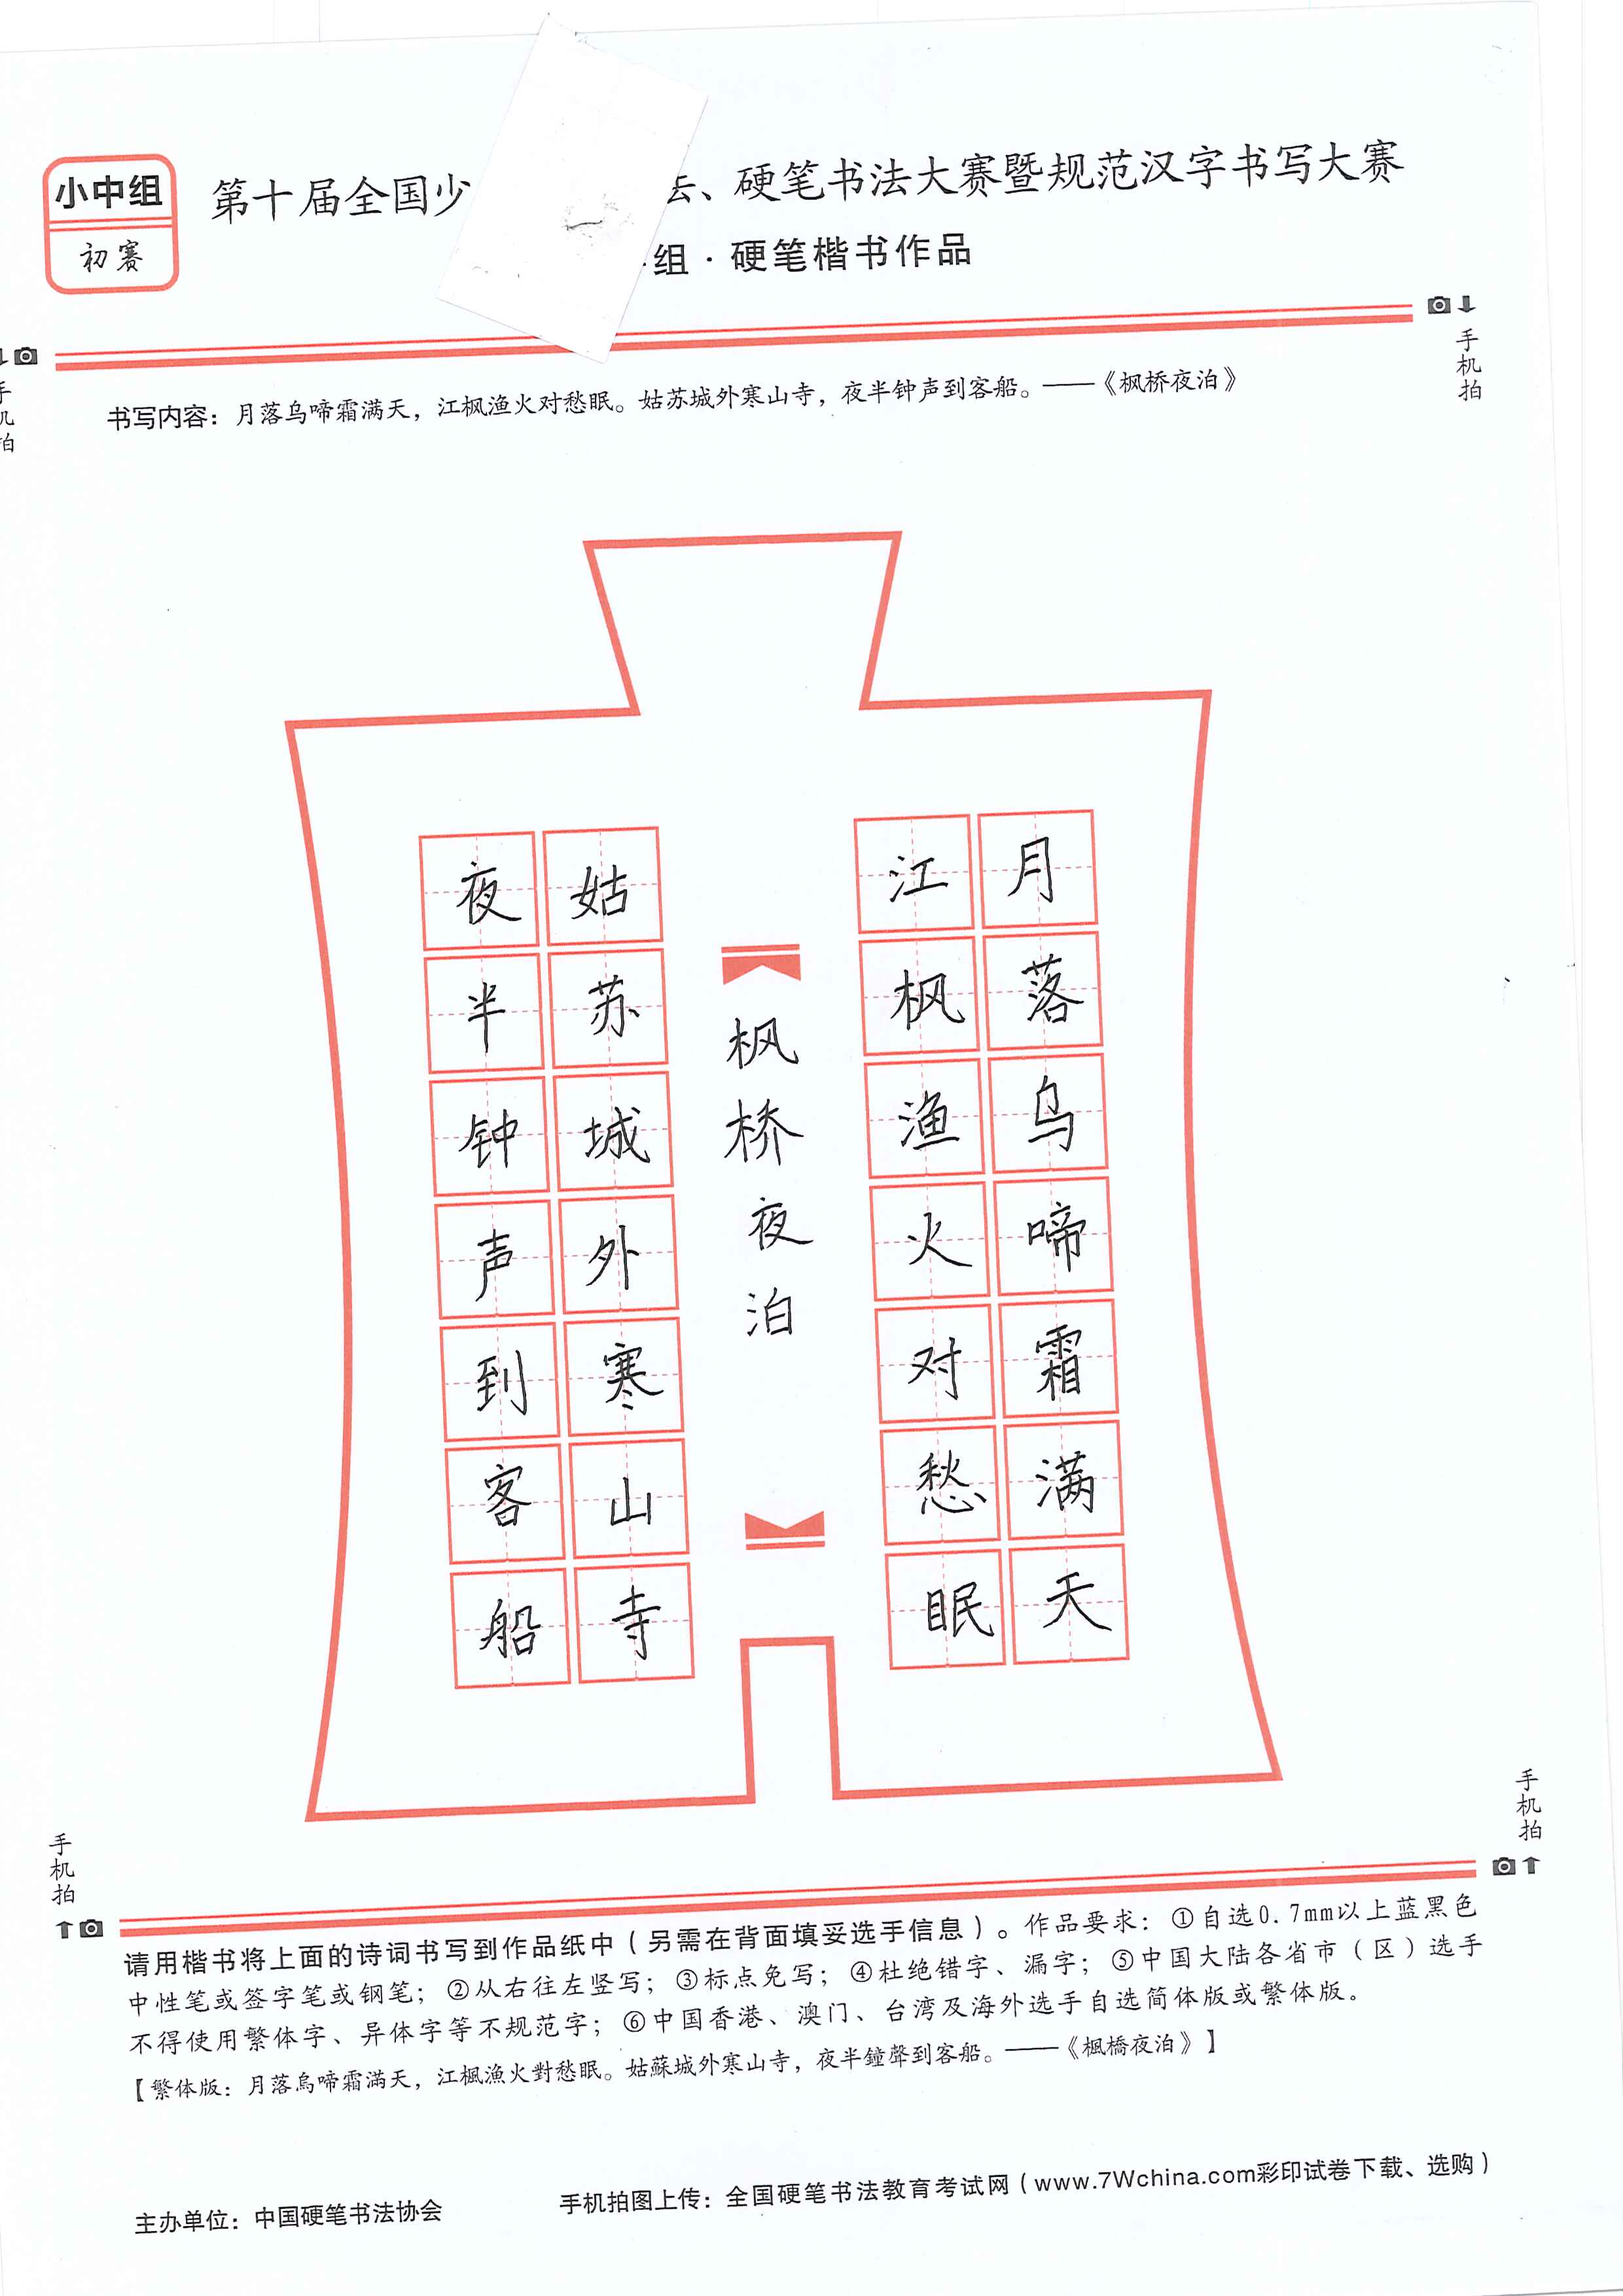 小中组
初赛
第十届全国少
、硬笔书法大赛暨规范汉字书写大赛
组·硬笔楷书作品
手机拍
手机拍
书写内容：月落乌啼霜满天，江枫渔火对愁眠。姑苏城外寒山寺，夜半钟声到客船。——《枫桥夜泊》
月落乌啼霜满天
江枫渔火对愁眠
枫桥夜泊
姑苏城外寒山寺
夜半钟声到客船
手机拍
手机拍
请用楷书将上面的诗词书写到作品纸中（另需在背面填妥选手信息）。作品要求：①自选0.7mm以上蓝黑色
中性笔或签字笔或钢笔；②从右往左竖写；③标点免写；④杜绝错字、漏字；⑤中国大陆各省市（区）选手
不得使用繁体字、异体字等不规范字；⑥中国香港、澳门、台湾及海外选手自选简体版或繁体版。
【繁体版：月落烏啼霜滿天，江楓漁火對愁眠。姑蘇城外寒山寺，夜半鐘聲到客船。——《楓橋夜泊》】
主办单位：中国硬笔书法协会
手机拍图上传：全国硬笔书法教育考试网（www.7Wchina.com彩印试卷下载、选购）